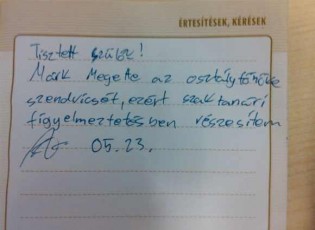 ÉRTESÍTÉSEK, KÉRÉSEK
Tisztelt szülők!
Márk Megette az osztálytársa
szendvicsét, ezért szaktanári
figyelmeztetésben részesítem
05.23.